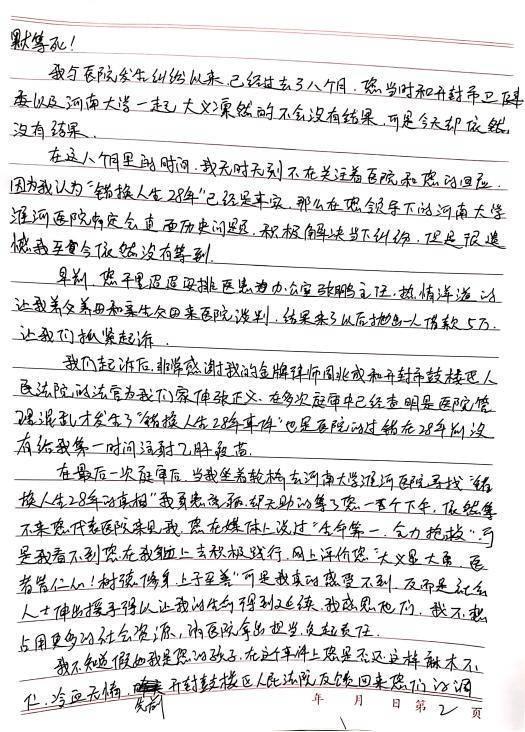 默等死！
我与医院发生纠纷以来，已经过去了八个月，您当时和开封市卫健
委以及河南大学一起，大义凛然的不会没有结果，可是今天却依然
没有结果。
在这八个月里的时间，我无时无刻不在关注着医院和您的回应，
因为我认为“错换人生28年”已经是事实，那么在您领导下的河南大学
淮河医院肯定会直面历史问题，积极解决当下纠纷，但是很遗
憾我至今依然没有等到。
早前，您千里迢迢安排医患办公室张鹏主任，热情洋溢的
让我养父养母和亲生父母来医院谈判，结果来了以后抛出一人借款5万，
让我们抓紧起诉。
我们起诉后，非常感谢我的金牌律师周兆成和开封市鼓楼区人
民法院的法官为我们家伸张正义，在多次庭审中已经查明是医院管
理混乱才发生了“错换人生28年事件”也是医院的过错在28年前没
有给我第一时间注射乙肝疫苗。
在最后一次庭审后，当我坐着轮椅在河南大学淮河医院寻找“错
换人生28年的真相”我身患癌症，却无助的等了您一整个下午，依然等
不来您代表医院来见我，您在媒体上说过“生命第一，全力抢救”，可
是我看不到您在我身上去积极践行，网上评价您“大义显大勇，医
者皆仁心！树德修身上于至善”可是我真的感受不到，反而是社会
人士伸出援手得以让我的生命得到延续，我感恩他们，我不想
占用更多的社会资源，请医院拿出担当，负起责任。
我不知道假如我是您的孩子，在这个事件上您是否还这样麻木不
仁，冷血无情，先前开封鼓楼区人民法院反馈回来您们的调
年 月 日 第2页